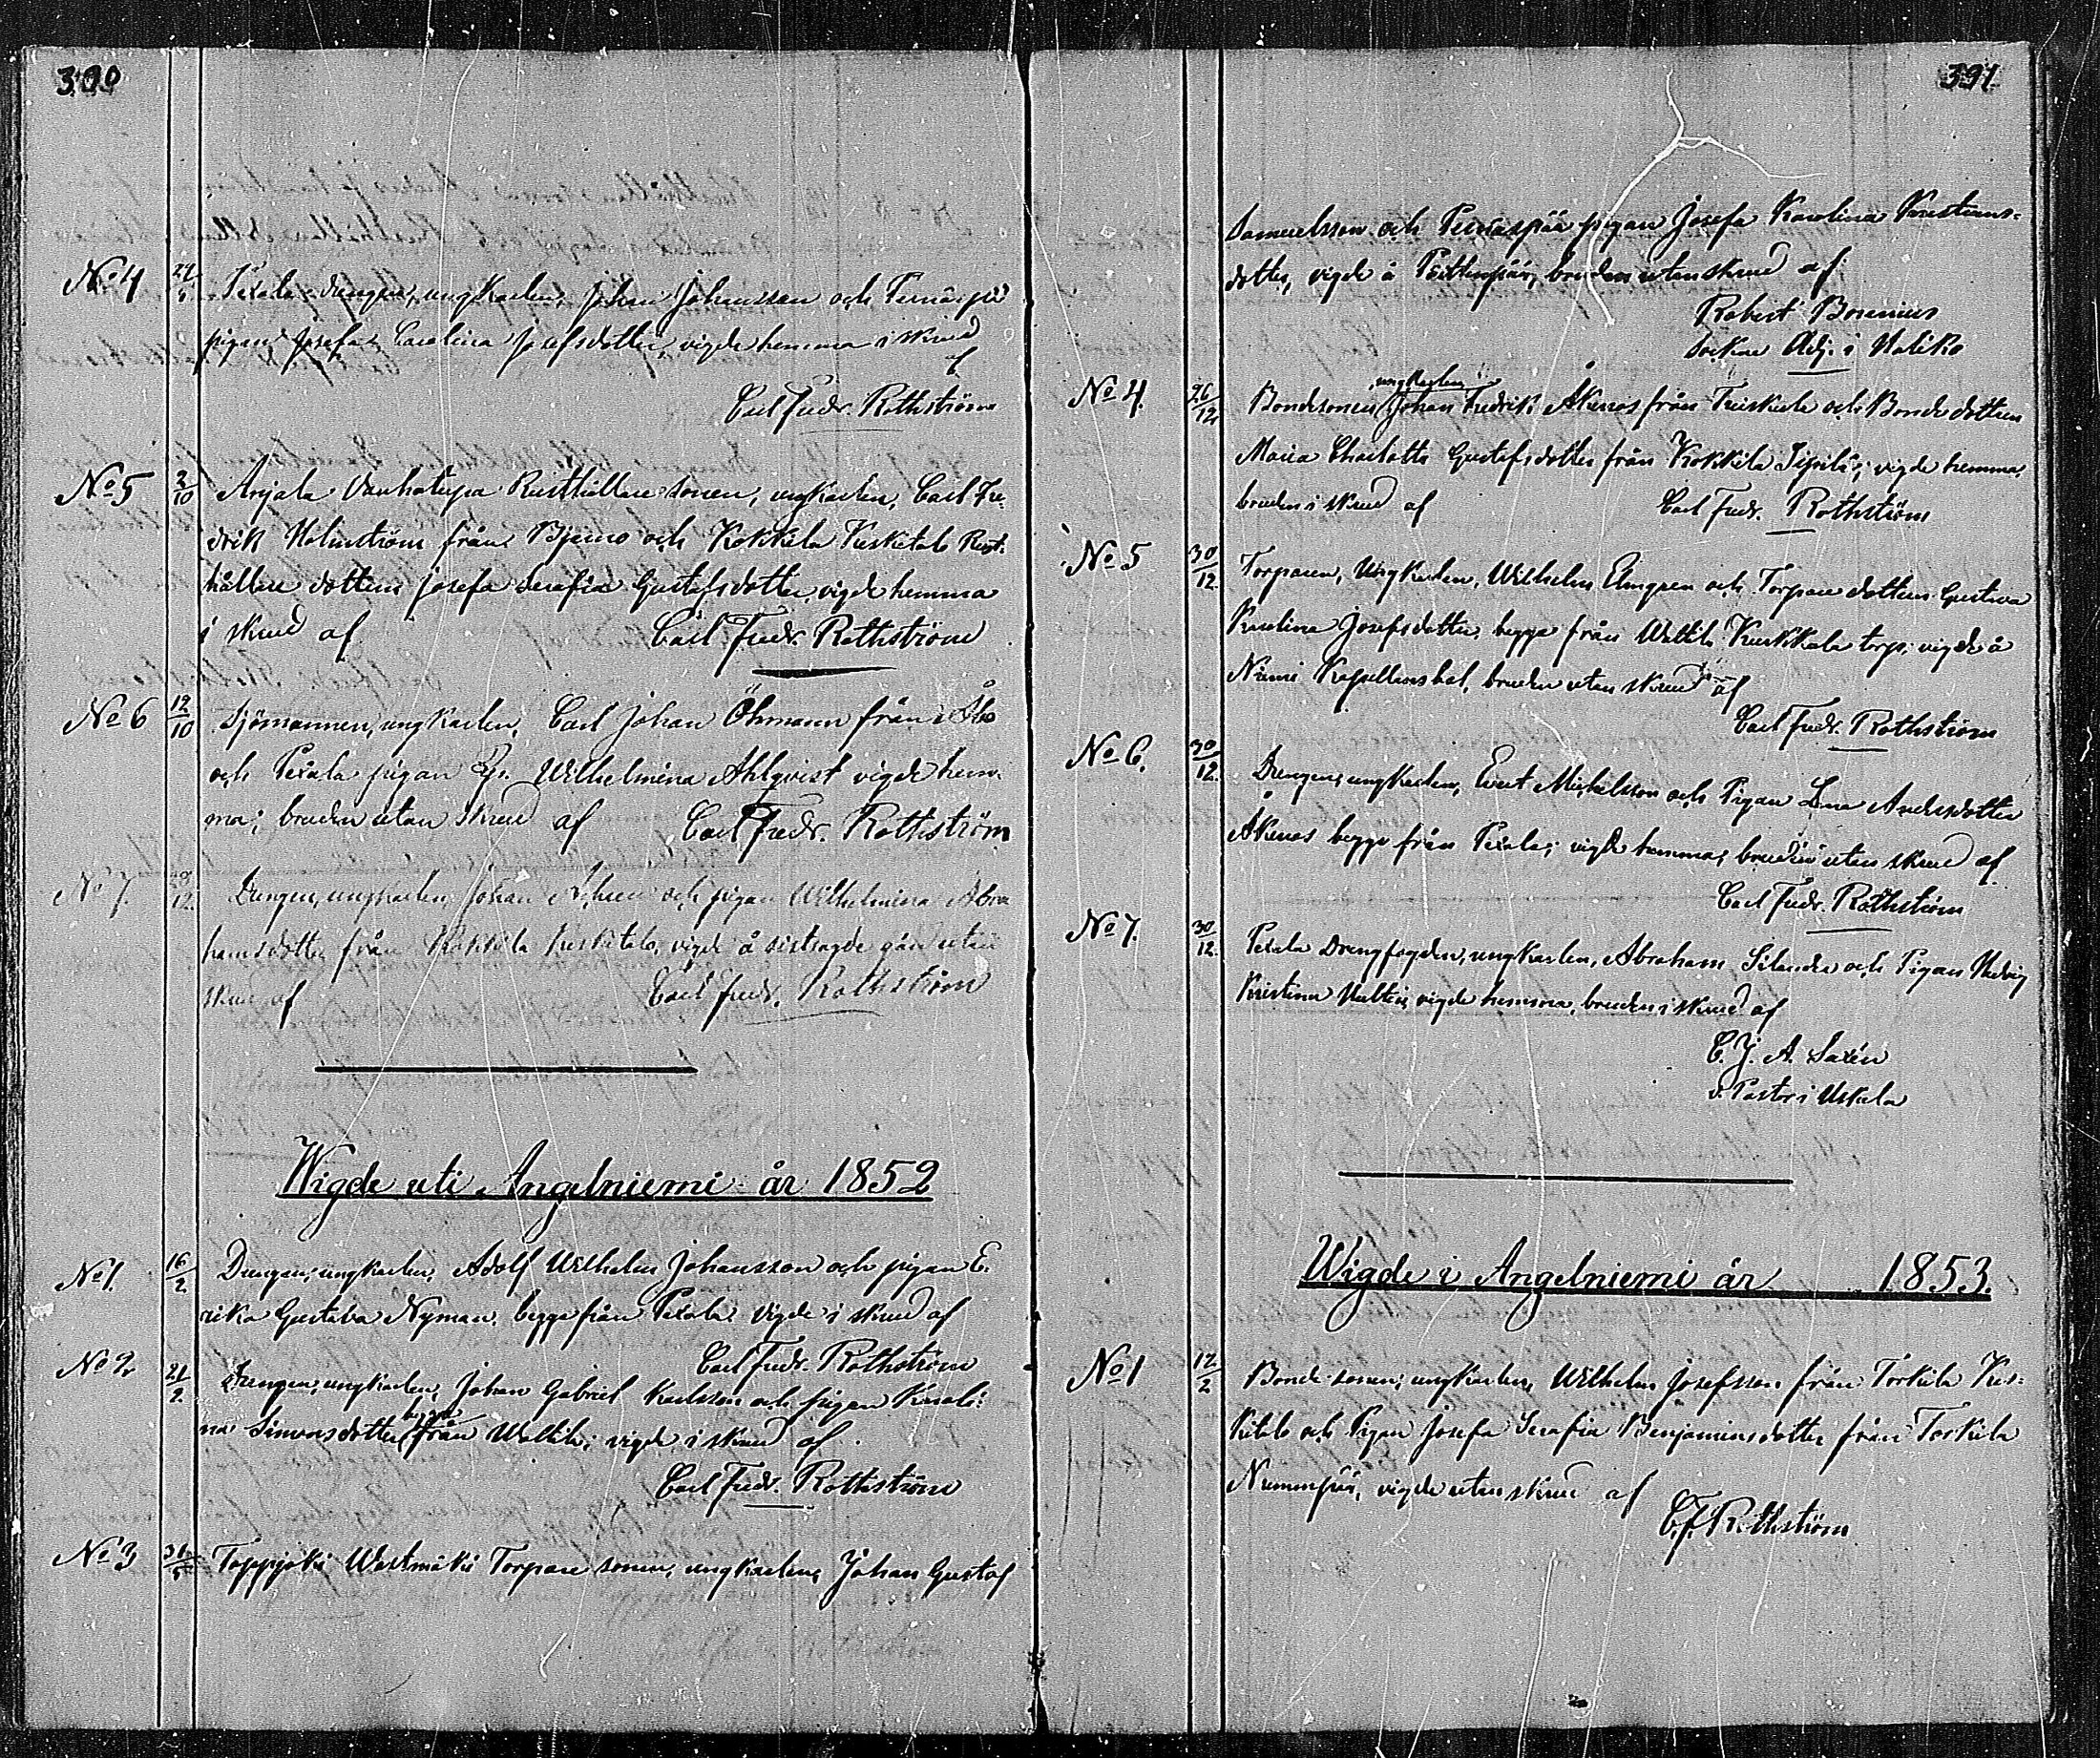 390
No 4 Pexala drengen, ungkarlen, Johan Johansson och Pernäspää
pigan Josefa Carolina Josefsdotter, vigde hemma i skrud
af
Carl Fredr. Rothström
No 5 2/10 Anjala Vanhatupa Rusthållare sonen, ungkarlen, Carl Fre-
drik Holmström från Bjerno och Kokkila Keskitalo Rust-
hållare dottern Josefa Serafia Gustafsdotter, vigde hemma
i skrud af Carl Fredr. Rothström
No 6 12/10 Sjömannen, ungkarlen, Carl Johan Öhmann från Åbo
och Pexala pigan Wilhelmina Ahlqvist vigde hem-
ma; bruden utan skrud af Carl Fredr. Rothström
No 7. 28/12 Drengen, ungkarlen, Johan och pigan Wilhelmina Abra
hamsdotter från Kokkila Keskitalo, vigde å sistsagde gård utan
skrud af Carl Fredr. Rothström
Wigde uti Angelniemi år 1852
No 1. 16/2 Drengen, ungkarlen, Adolf Wilhelm Johansson och pigan E-
rika Gustava Nyman, begge från Pexala vigde i skrud af
Carl Fredr. Rothström
No 2 21/2 Drengen, ungkarlen, Johan Gabriel Karlsson och pigan Karoli-
na Simonsdotter begge från Waltila; vigde i skrud af
Carl Fredr. Rothström
No 3 Toppjoki Wastmäki Torpare sonen, ungkarlen, Johan Gustaf
391
Samuelsson och Pernäspää pigan Josefa Karolina Kristians-
dotter, vigde å bruden utan skrud af
Robert Borenius
Sockne Adj. i Haliko
No 4. 26/12 Bondesonen, ungkarlen, Johan Fredrik Åkerros från Triskala och Bonde dottern
Maria Charlotta Gustafsdotter från Kokkila Sipilä; vigde hemma,
bruden i skrud af Carl Fredr. Rothström
No 5 30/12 Torparen, Ungkarlen, Wilhelm Elmgren och Torpare dottern Gustava
Karolina Josefsdotter, begge från Kurkkala torp; vigde å
Niemi Kapellansbol, bruden utan skrud af
Carl Fredr. Rothström
No 6. 30/12. Drengen, ungkarlen, Evert Michelsson och Pigan Lena Andersdotter
Åkerros begge från Pexala; vigde hemma, bruden utan skrud af
Carl Fredr. Rothström
No 7. 30/12. Pexala Drengfogden, ungkarlen, Abraham Silander och Pigan Hedvig
Kristina vigde hemma, bruden i skrud af
C. J. A. Saxén
v. Pastor i Uskela
Wigde i Angelniemi år 1853.
No 1 12/2 Bonde sonen, ungkarlen, Wilhelm Josefsson från Torkila Kes-
kitalo och Pigan Josefa Serafia Benjaminsdotter från Torkila
Nummipää, vigde utan skrud af
C. F. Rothström